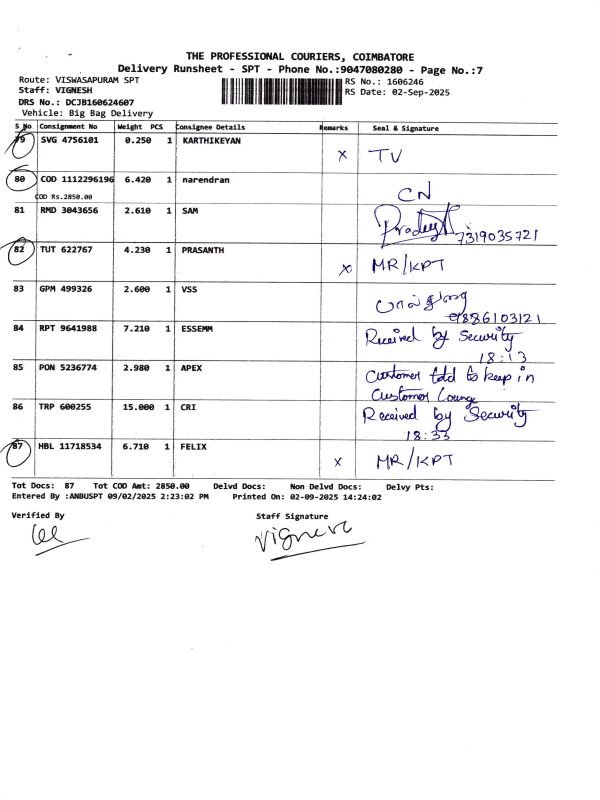 THE PROFESSIONAL COURIERS, COIMBATORE
Delivery Runsheet - SPT - Phone No.:9047080280 - Page No.:7
Route: VISWASAPURAM SPT
RS No.: 1606246
Staff: VIGNESH
RS Date: 02-Sep-2025
DRS No.: DCJB160624607
Vehicle: Big Bag Delivery
S No Consignment No Weight PCS Consignee Details Remarks Seal & Signature
79 SVG 4756101 0.250 1 KARTHIKEYAN x TV
80 COD 1112296196 6.420 1 narendran CN
COD Rs.2850.00
81 RMD 3043656 2.610 1 SAM
7319035721
82 TUT 622767 4.230 1 PRASANTH x MR/KPT
83 GPM 499326 2.600 1 VSS
9886103121
84 RPT 9641988 7.210 1 ESSEMM Received by Security
18:13
85 PON 5236774 2.980 1 APEX Customer told to keep in
Customer Lounge
86 TRP 600255 15.000 1 CRI Received by Security
18:33
87 HBL 11718534 6.710 1 FELIX x MR/KPT
Tot Docs: 87 Tot COD Amt: 2850.00 Delvd Docs: Non Delvd Docs: Delvy Pts:
Entered By :ANBUSPT 09/02/2025 2:23:02 PM Printed On: 02-09-2025 14:24:02
Verified By Staff Signature
Vignesh